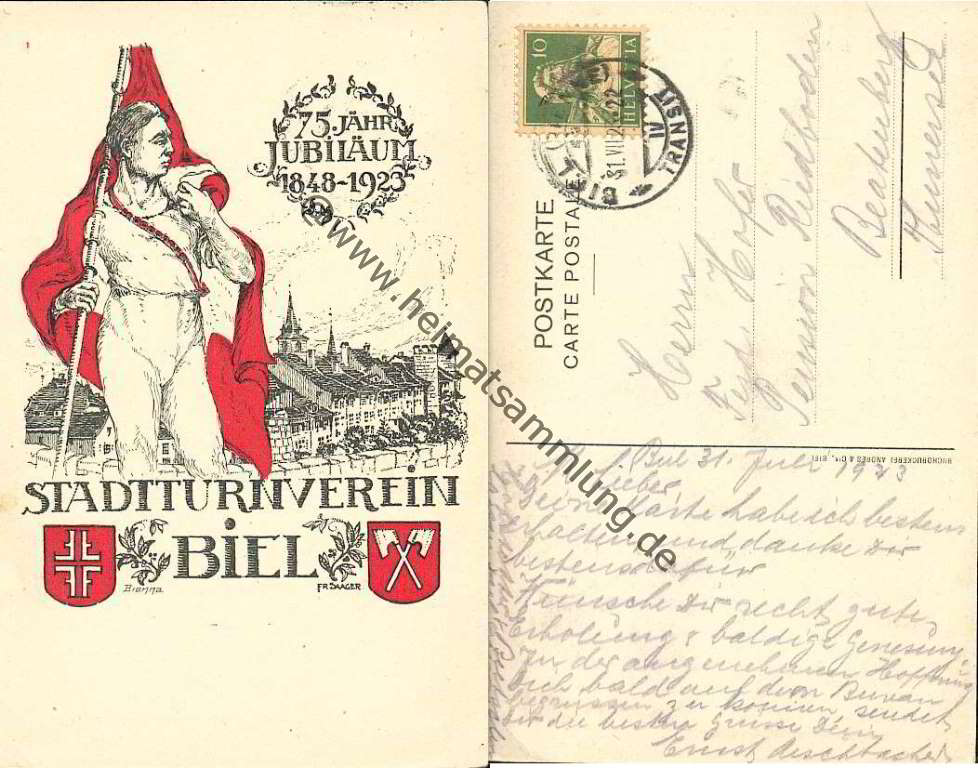 75 JÄHR.
JUBILÄUM
1848-1923
STADTTURNVEREIN
BIEL
Bienna.
FR. SAAGER
©www.heimatsammlung.de
10
HELVETIA
BIEL
31. VII 23 22
TRANSIT
IV
POSTKARTE
CARTE POSTALE
Herrn
Ferd. Hofer
Pension Riedboden
Beatenberg
BUCHDRUCKEREI ANDRES & Cie, BIEL
Biel 31. Juli 1923
Mein Lieber
Deine Karte habe ich bestens
erhalten und danke Dir
bestens dafür
Wünsche Dir recht gute
Erholung & baldige Genesung
In der angenehmen Hoffnung
Dich bald auf dem Bureau
begrüssen zu können sendet
Dir die besten Grüsse Dein
Ernst Aeschbacher